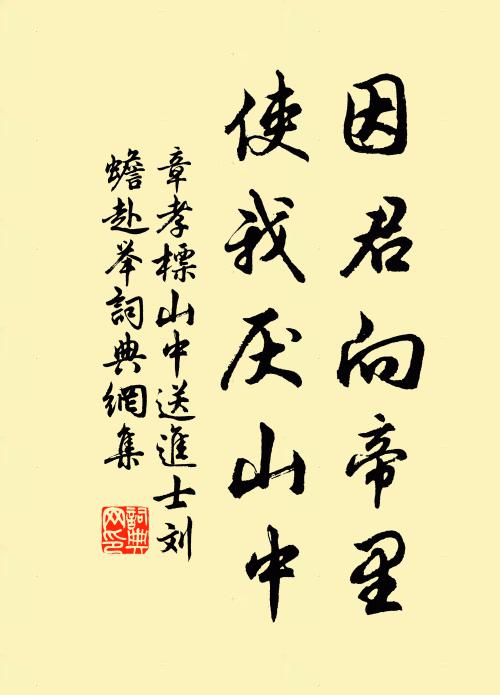 因君向帝里
使我厌山中
章孝標山中送進士刘
蟾赴举詞典網集
詞典
网印